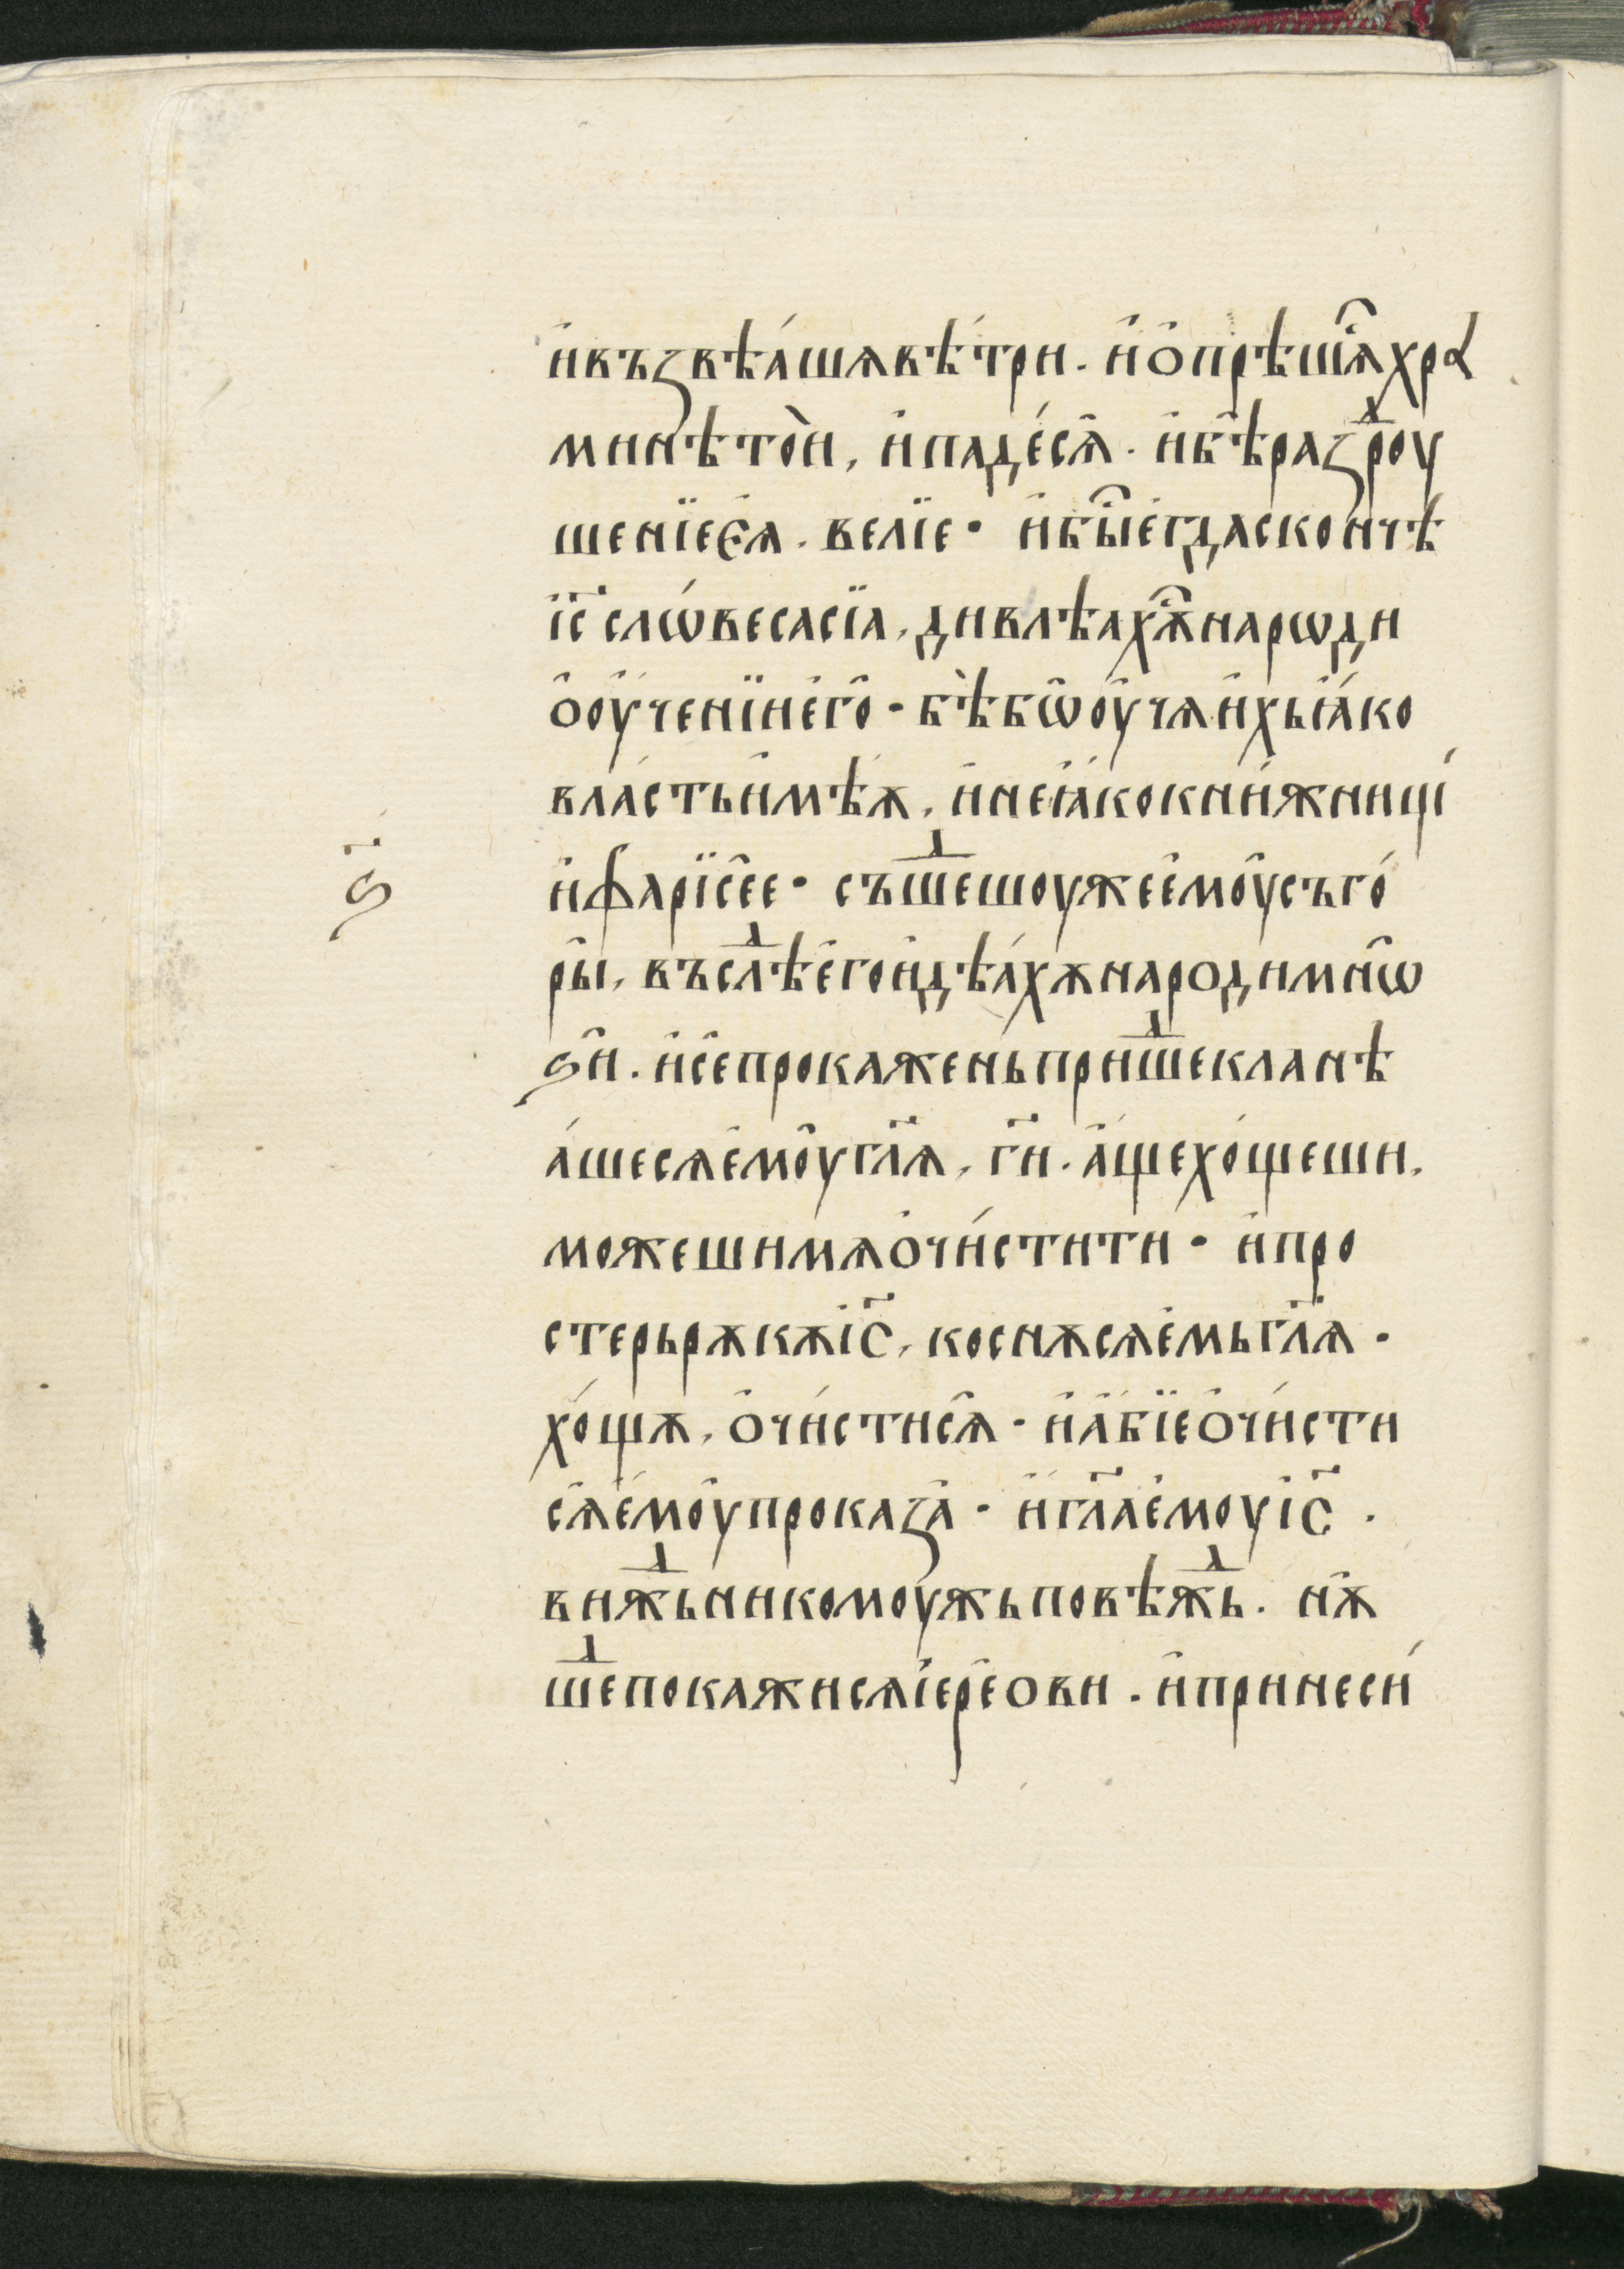 и҆въꙁвѣ́ашѧвѣ́три. и҆ѻ҆прѣшѧⷭ҇хра
минѣто̀и, и҆паде́сѧ҆. и҆бѣ҆раꙁⷣроу
шенїеєѧ҆. велїе· и҆быⷭ҇е҆гдаскончѣ
і҆с҃ слѡ́весасїа, дивлѣахѫⷭ҇нарѡди
ѻ҆оу҆ченїие҆го҆· бѣ̀бѡ҆оу҆чѧи҆хьꙗ҆́ко
вла́стьи҆мѣ́ѧ, и҆неꙗ҆́кокни́жнищі
и҆фарїсе҆е· съшⷣешоужее҆моу҆съго́
ры҆, въслⷣѣе҆гои҆дѣа́хѫнародимнѡ҆
ѕи҆. и҆се҆прокаженьпришⷣекланѣ
а́шесѧе҆моу҆гл҃ѧ, ги҃. а҆́щехо́щеши,
можешимѧѻ҆чи́стити· и҆про
стерьрѫкѫі҆с҃, коснѫсѧе҆мьгл҃ѧ·
хо́щѫ, ѻ҆чи́стисѧ҆· и҆а҆́бїеѻ҆чи́сти
сѧ҆е҆́моу҆проказа҆· и҆гл҃ае҆моуі҆с҃.
вижⷣьникомоу҆жьповѣжⷣь. нѫ҆
шⷣепокажисѧі҆ере҆ови. и҆принеси́
ѕ҃